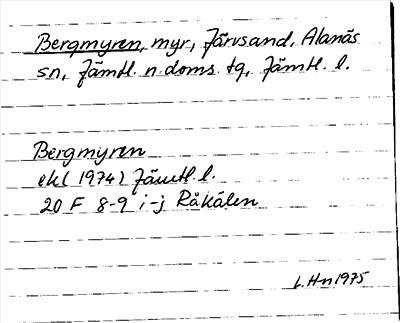 Bergmyren, myr, Järvsand, Alanäs
sn, Jämtl. n. doms. tg, Jämtl. l.
Bergmyren
ek (1974) Jämtl. l.
20 F 8-9 i-j Råkälen
L. Hn 1975